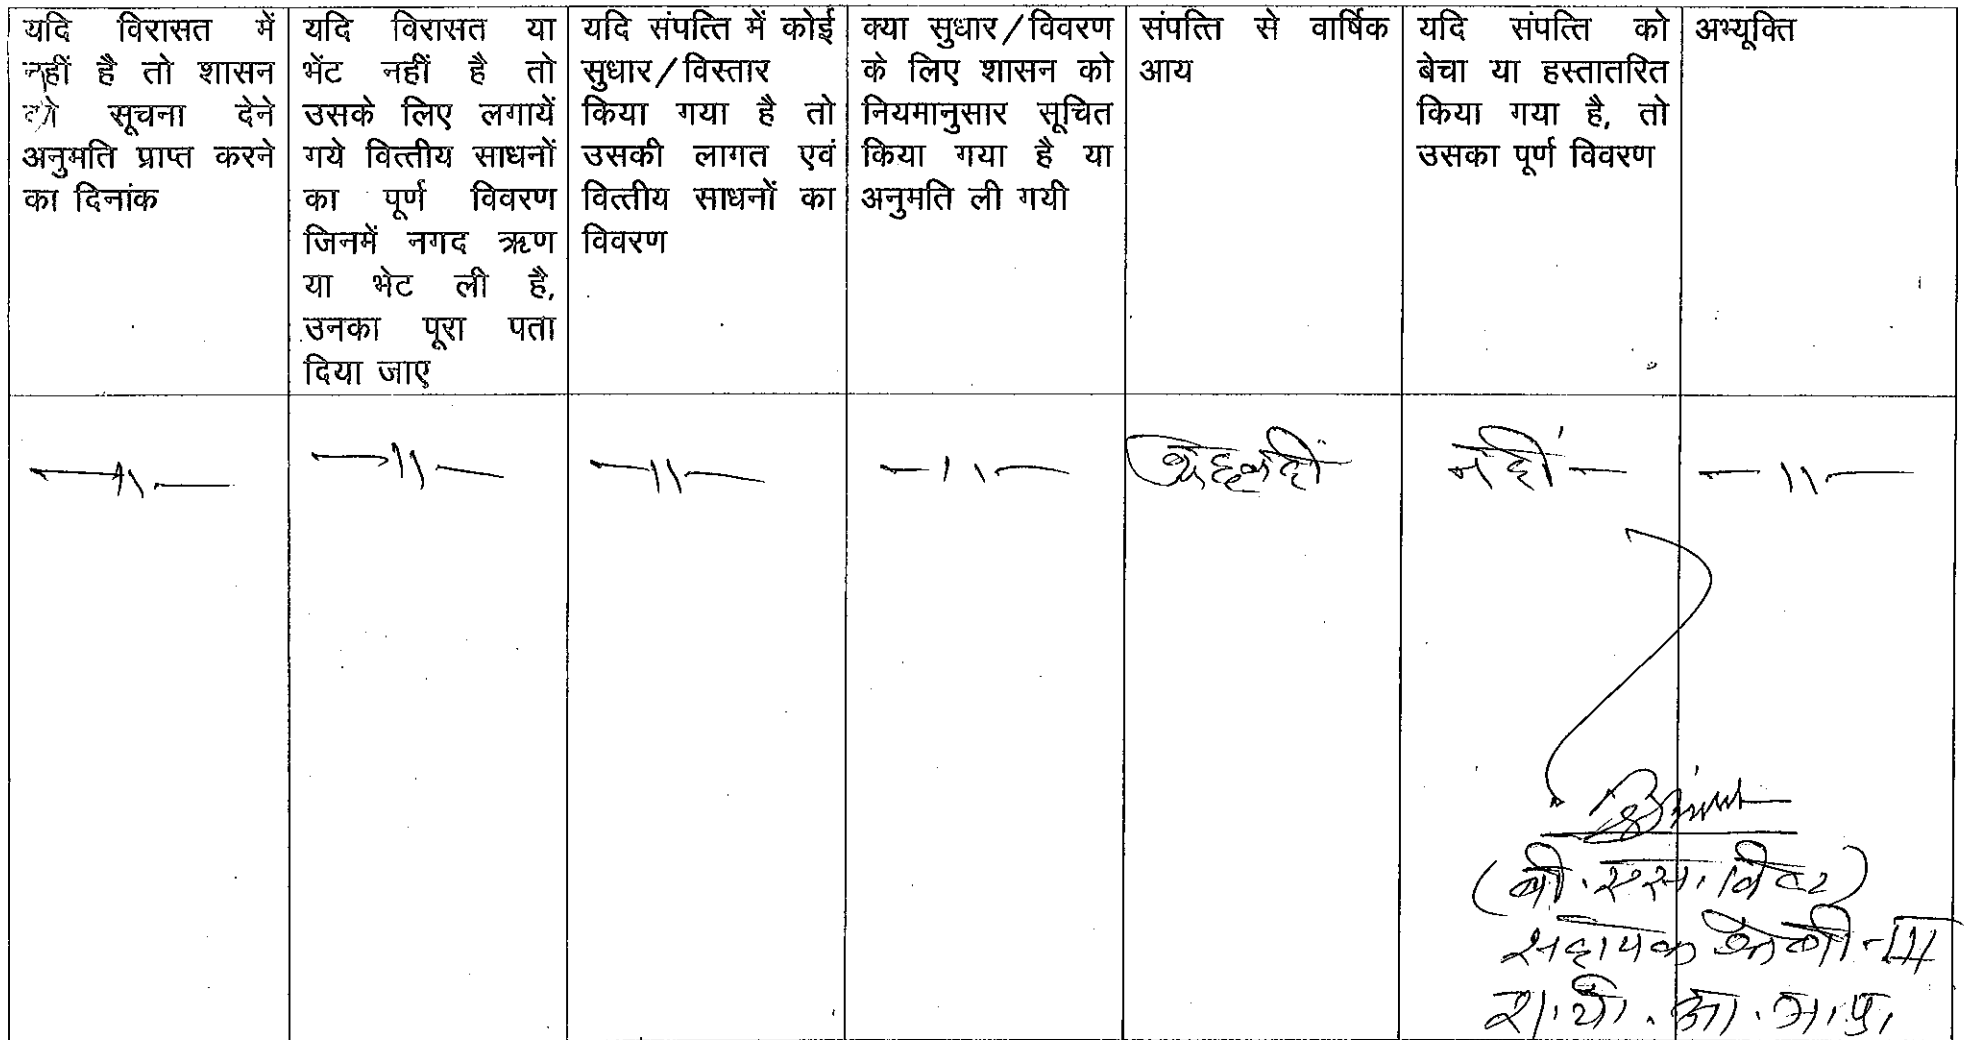 यदि विरासत में
नहीं है तो शासन
को सूचना देने
अनुमति प्राप्त करने
का दिनांक
यदि विरासत या
भेंट नहीं है तो
उसके लिए लगायें
गये वित्तीय साधनों
का पूर्ण विवरण
जिनमें नगद ऋण
या भेट ली है,
उनका पूरा पता
दिया जाए
यदि संपत्ति में कोई
सुधार/विस्तार
किया गया है तो
उसकी लागत एवं
वित्तीय साधनों का
विवरण
क्या सुधार/विवरण
के लिए शासन को
नियमानुसार सूचित
किया गया है या
अनुमति ली गयी
संपत्ति से वार्षिक
आय
यदि संपत्ति को
बेचा या हस्तातरित
किया गया है, तो
उसका पूर्ण विवरण
अभ्यूक्ति
—11—
—11—
—11—
—11—
नहीं —
—11—
(बी. एस.
सहायक श्रेणी-III
रा. यो. आ. म. प्र.